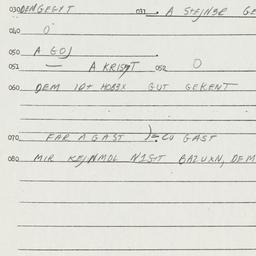 030 DEMGEGYT 031 — A STEJN3E GE
040 O
050 A GOJ
051 — A KRIST 052 O
060 DEM IDT HOB3X GUT GEKENT
070 FAR A GAST )= CU GAST
080 MIR KEJNMOL NIST BAZUXN, DEM